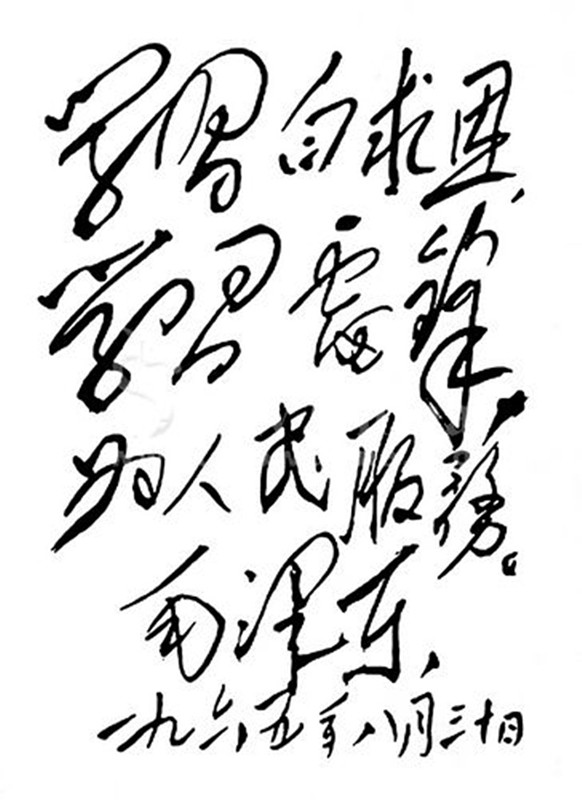 学習白求恩,
学習雷锋,
为人民服務。
毛泽东
一九六五年八月三十日